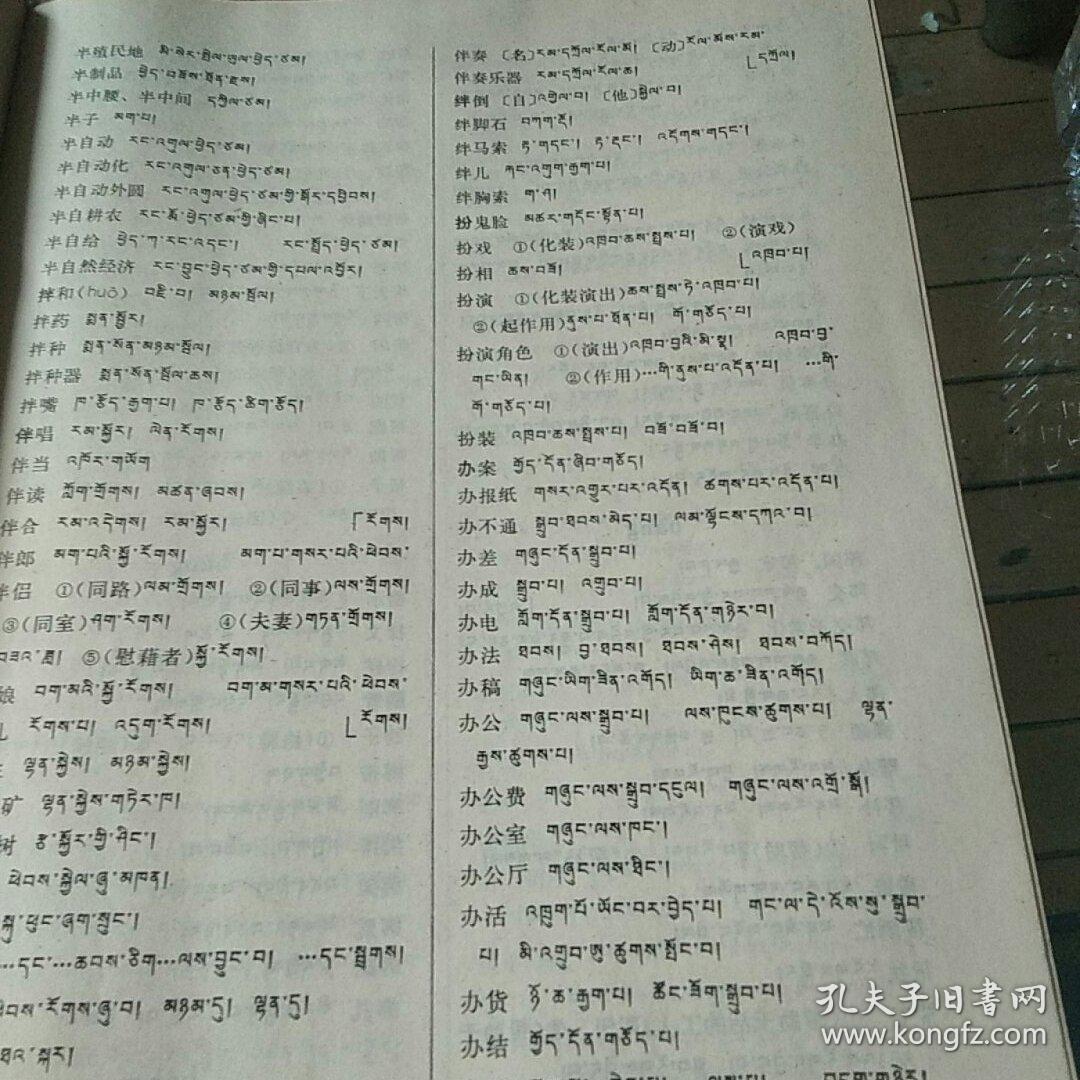 半殖民地 མི་སེར་སྤྱིལ་ཡུལ་ཕྱེད་ཙམ།
半制品 ཕྱེད་བཟོས་ཐོན་རྫས།
半中腰、半中间 དཀྱིལ་ཙམ།
半子 མག་པ།
半自动 རང་འགུལ་ཕྱེད་ཙམ།
半自动化 རང་འགུལ་ཅན་ཕྱེད་ཙམ།
半自动外圆 རང་འགུལ་ཕྱེད་ཙམ་གྱི་སྒོར་དབྱིབས།
半自耕农 རང་རྨོ་ཕྱེད་ཙམ་གྱི་ཞིང་པ།
半自给 ཕྱེད་ཀ་རང་འདང་། རང་སྤྲོད་ཕྱེད་ཙམ།
半自然经济 རང་བྱུང་ཕྱེད་ཙམ་གྱི་དཔལ་འབྱོར།
拌和(huó) བརྫི་བ། མཉམ་སྲོལ།
拌药 སྨན་སྦྱོར།
拌种 སྨན་སོན་མཉམ་སྲོལ།
拌种器 སྨན་སོན་སྲོལ་ཆས།
拌嘴 ཁ་རྩོད་རྒྱག་པ། ཁ་རྩོད་ཚིག་རྩོད།
伴唱 རམ་སྦྱོར། ལེན་རོགས།
伴当 འཁོར་གཡོག
伴读 ཀློག་གྲོགས། མཚན་ཞབས།
伴合 རམ་འདེགས། རམ་སྦྱོར། ⌈རོགས།
伴郎 མག་པའི་སྐྱོ་རོགས། མག་པ་གསར་པའི་ཕེབས་
伴侣 ①(同路)ལམ་གྲོགས། ②(同事)ལས་གྲོགས།
③(同室)ཤག་རོགས། ④(夫妻)གཏན་གྲོགས།
བཟའ་ཟླ། ⑤(慰藉者)སྐྱོ་རོགས།
娘 བག་མའི་སྐྱོ་རོགས། བག་མ་གསར་པའི་ཕེབས་
རོགས་པ། འདུག་རོགས། ⌊རོགས།
ལྷན་སྐྱེས། མཉམ་སྐྱེས།
矿 ལྷན་སྐྱེས་གཏེར་ཁ།
树 རྩ་སྐྱོར་གྱི་ཤིང་།
ཕེབས་སྐྱེལ་ཞུ་མཁན།
སྐུ་ཕུང་ཞག་སྲུང་།
…དང་…ཆབས་ཅིག…ལས་བྱུང་བ། …དང་སྦྲགས།
ཕེབས་རོགས་ཞུ་བ། མཉམ་དུ། ལྷན་དུ།
伴奏 〔名〕རམ་དཀྲོལ་རོལ་མོ། 〔动〕རོལ་མོས་རམ་
⌊དཀྲོལ།
伴奏乐器 རམ་དཀྲོལ་རོལ་ཆ།
绊倒 〔自〕འགྱེལ་བ། 〔他〕སྒྱེལ་བ།
绊脚石 བཀག་རྡོ།
绊马索 རྟ་གདང་། རྟ་རྡང་། འདོགས་གདང་།
绊儿 རྐང་འགུག་རྒྱག་པ།
绊胸索 གྲ་ཤ།
扮鬼脸 མཚར་གདོང་སྟོན་པ།
扮戏 ①(化装)འཁྲབ་ཆས་སྤྲས་པ། ②(演戏)
⌊འཁྲབ་པ།
扮相 ཆས་བཟོ།
扮演 ①(化装演出)ཆས་སྤྲས་ཏེ་འཁྲབ་པ།
②(起作用)ནུས་པ་ཐོན་པ། གོ་གཅོད་པ།
扮演角色 ①(演出)འཁྲབ་བྱའི་མི་སྣ། འཁྲབ་བྱ་
གང་ཡིན། ②(作用)…གི་ནུས་པ་འདོན་པ། …གི་
གོ་གཅོད་པ།
扮装 འཁྲབ་ཆས་སྤྲས་པ། བཟོ་བཟོ་བ།
办案 གྱོད་དོན་ཞིབ་གཅོད།
办报纸 གསར་འགྱུར་པར་འདོན། ཚགས་པར་འདོན་པ།
办不通 སྒྲུབ་ཐབས་མེད་པ། ལམ་ལྷོངས་དཀའ་བ།
办差 གཞུང་དོན་སྒྲུབ་པ།
办成 སྒྲུབ་པ། འགྲུབ་པ།
办电 གློག་དོན་སྒྲུབ་པ། གློག་དོན་གཉེར་བ།
办法 ཐབས། བྱ་ཐབས། ཐབས་ཤེས། ཐབས་བཀོད།
办稿 གཞུང་ཡིག་ཟིན་འགོད། ཡིག་ཆ་ཟིན་འགོད།
办公 གཞུང་ལས་སྒྲུབ་པ། ལས་ཁུངས་ཚུགས་པ། ལྷན་
རྒྱས་ཚུགས་པ།
办公费 གཞུང་ལས་སྒྲུབ་དངུལ། གཞུང་ལས་འགྲོ་སྒོ།
办公室 གཞུང་ལས་ཁང་།
办公厅 གཞུང་ལས་ཐིང་།
办活 འཁྲུག་པོ་ཡོང་བར་བྱེད་པ། གང་ལ་དེ་འོས་སུ་སྒྲུབ་
པ། མི་འགྲུབ་ཨུ་ཚུགས་སྤོང་བ།
办货 ཉོ་ཆ་རྒྱག་པ། ཚོང་ཟོག་སྒྲུབ་པ།
办结 གྱོད་དོན་གཅོད་པ།
孔夫子旧书网
www.kongfz.com